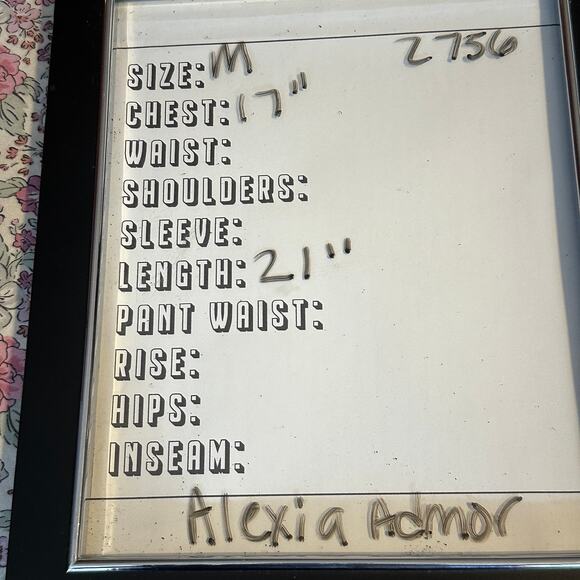 SIZE: M 2756
CHEST: 17"
WAIST:
SHOULDERS:
SLEEVE:
LENGTH: 21"
PANT WAIST:
RISE:
HIPS:
INSEAM:
Alexia Admor